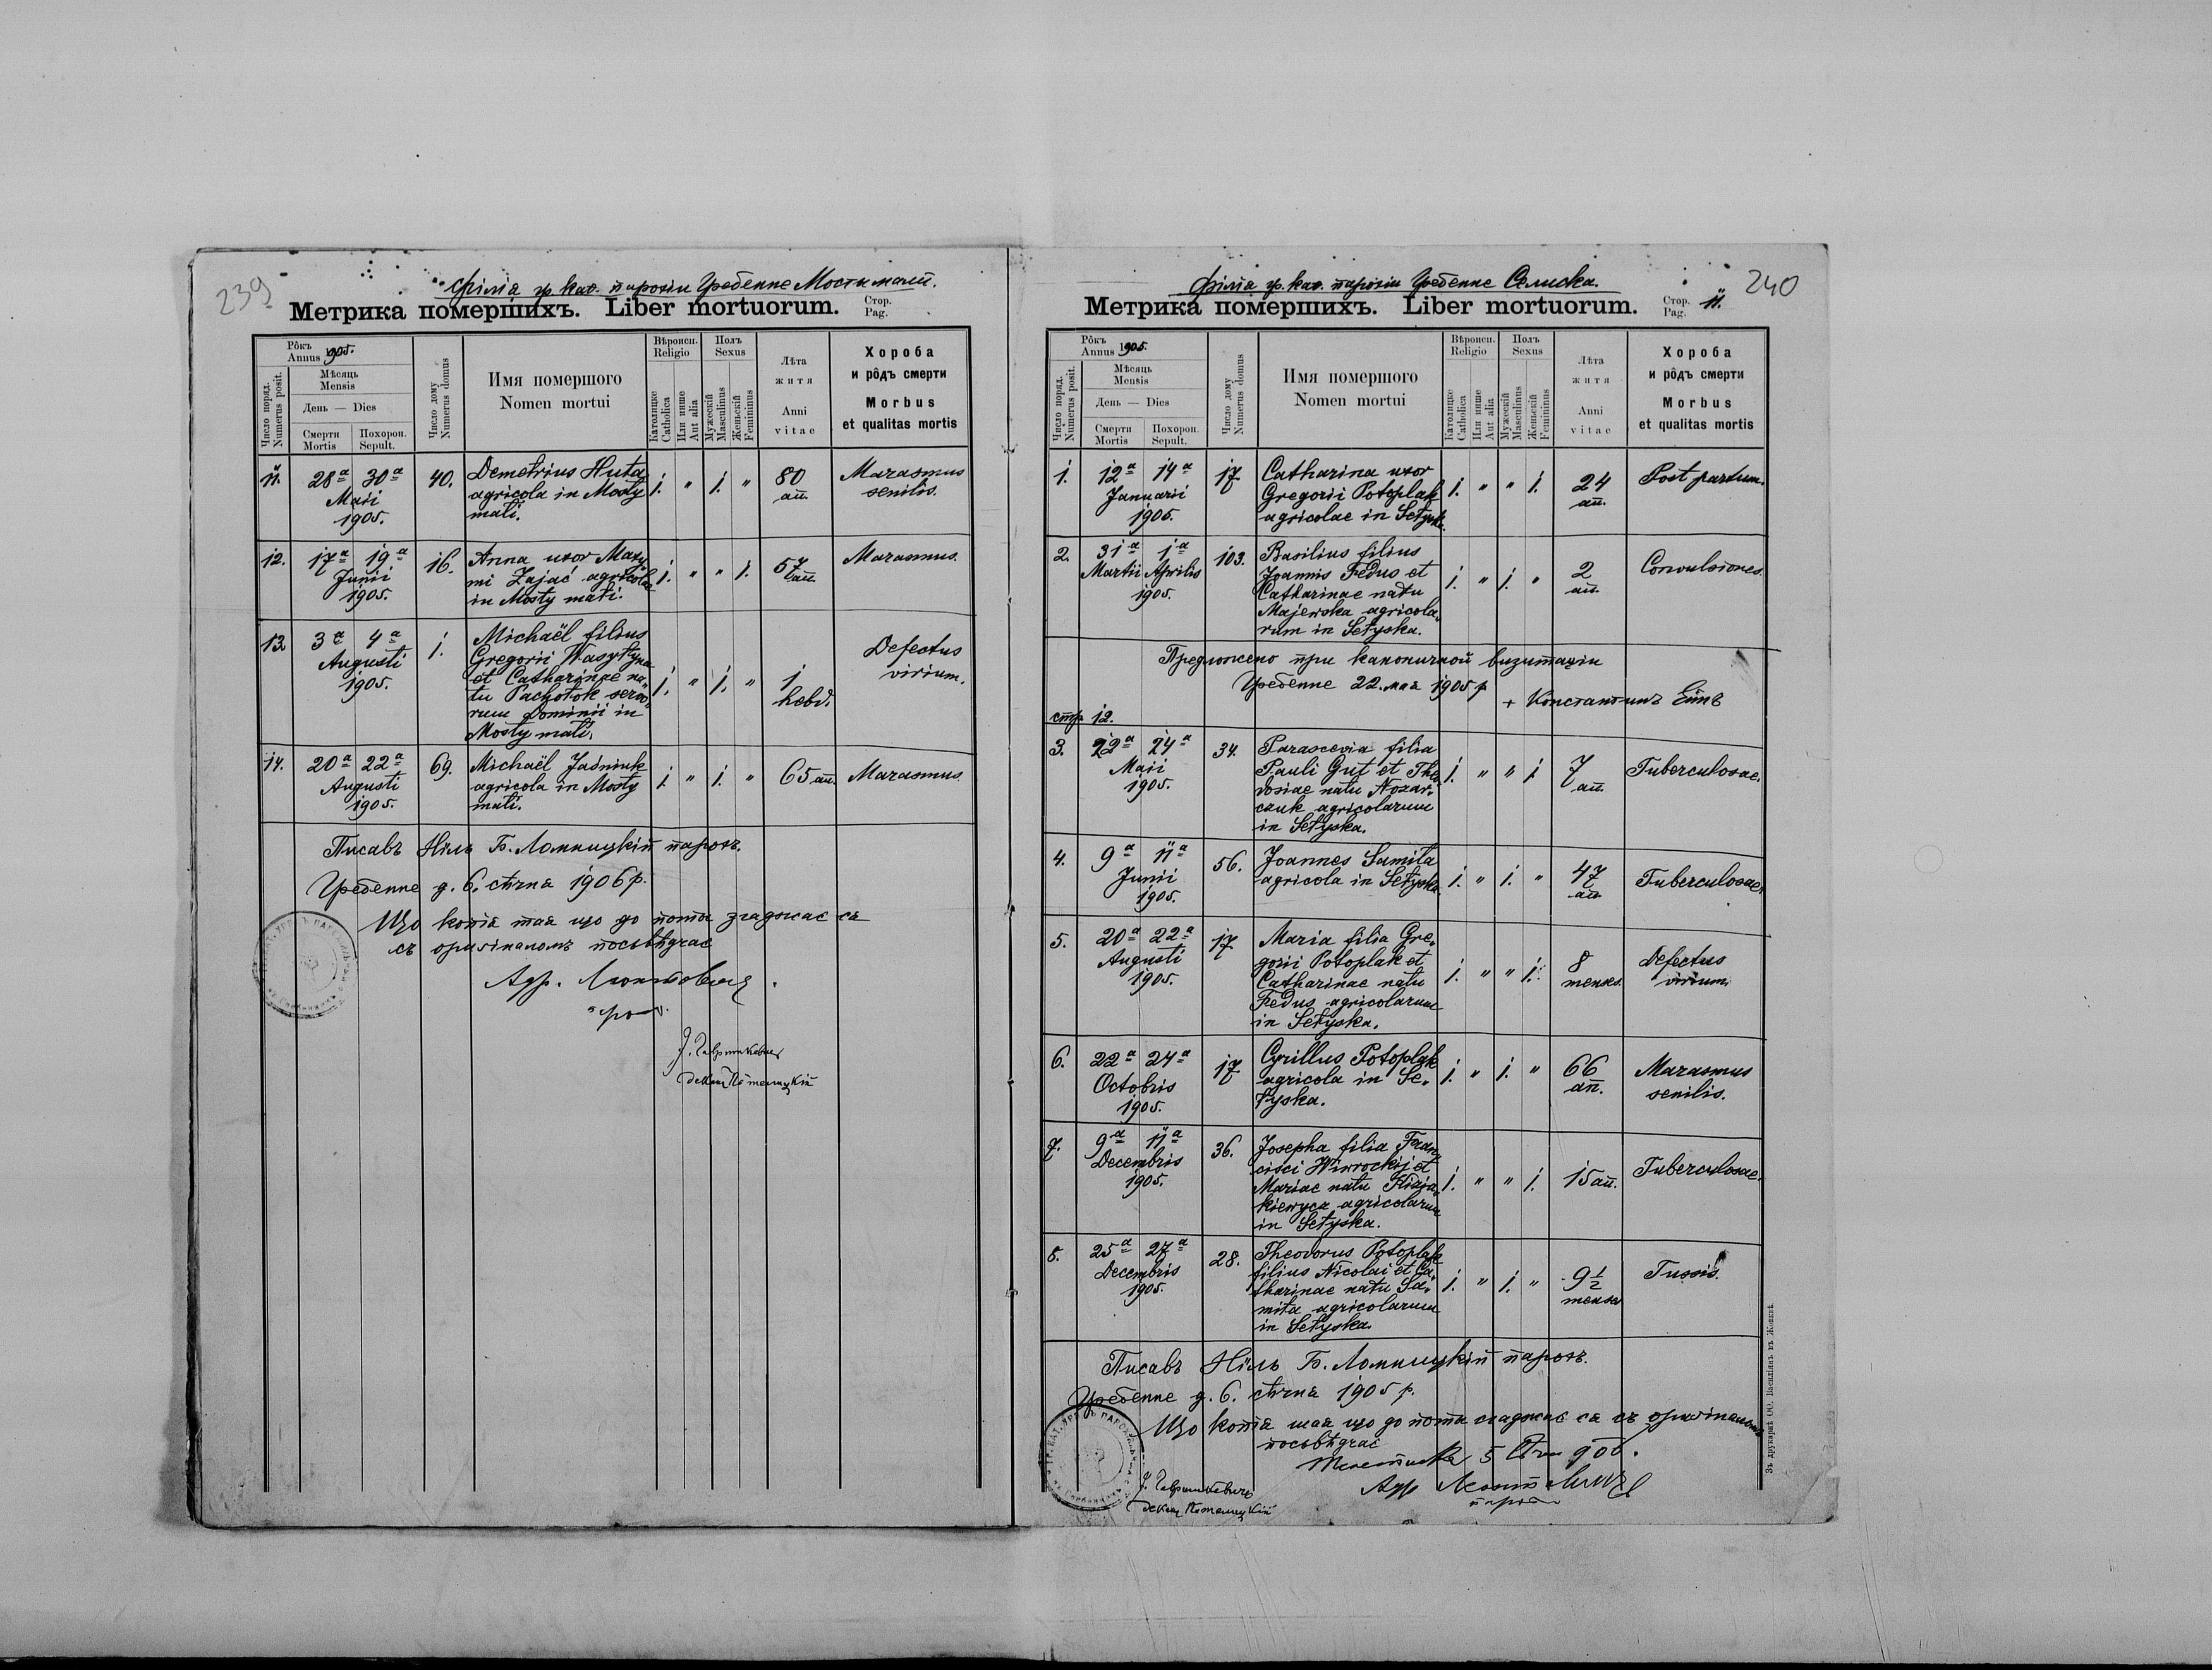 239
філія гр. кат. парохіи Гребенне Мости малі.
Метрика помершихъ. Liber mortuorum.
Стор.
Pag.
Рôкъ
Annus 1905.
Число поряд.
Numerus posit.
Мѣсяць
Mensis
День — Dies
Смерти
Mortis
Похорон.
Sepult.
Число дому
Numerus domus
Имя помершого
Nomen mortui
Вѣроисп.
Religio
Католицке
Catholica
Или инше
Aut alia
Полъ
Sexus
Мужескій
Masculinus
Женьскій
Femininus
Лѣта
житя
Anni
vitae
Хороба
и рôдъ смерти
Morbus
et qualitas mortis
11. 28ª 30ª Maii 1905. 40.
Demetrius Huta
agricola in Mosty
małi.
1. " 1. " 80 an̄. Marasmus
senilis.
12. 17ª 19ª Junii 1905. 16.
Anna uxor Maxy-
mi Zając agricolae
in Mosty małi.
1. " " 1. 57 an̄. Marasmus.
13. 3ª 4ª Augusti 1905. 1.
Michaël filius
Gregorii Wasyłyna
et Catharinae na-
tu Pachołok servo-
rum Dominii in
Mosty małi.
1. " 1. " 1 hebd. Defectus
virium.
14. 20ª 22ª Augusti 1905. 69.
Michaël Jaśniuk
agricola in Mosty
małi.
1. " 1. " 65 an̄. Marasmus.
Писавъ Ніль Б. Ломницкій парох.
Гребенне д. 6. січня 1906 р.
Що копія тая що до йота згаджає ся
съ оригіналомъ посьвѣдчає
декан Потелицкій
240
філія гр. кат. парохіи Гребенне Селиска.
Метрика помершихъ. Liber mortuorum.
Стор.
Pag. 11.
Рôкъ
Annus 1905.
Число поряд.
Numerus posit.
Мѣсяць
Mensis
День — Dies
Смерти
Mortis
Похорон.
Sepult.
Число дому
Numerus domus
Имя помершого
Nomen mortui
Вѣроисп.
Religio
Католицке
Catholica
Или инше
Aut alia
Полъ
Sexus
Мужескій
Masculinus
Женьскій
Femininus
Лѣта
житя
Anni
vitae
Хороба
и рôдъ смерти
Morbus
et qualitas mortis
1. 12ª 14ª Januarii 1905. 17
Catharina uxor
Gregorii Potoplak
agricolae in Sełysk.
1. " " 1. 24 an̄. Post partum.
2. 31ª 1ª Martii Aprilis 1905. 103.
Basilius filius
Joannis Fedus et
Catharinae natu
Majewska agricola-
rum in Sełyska.
1. " 1. " 2 an̄. Convulsiones.
Предложено при каноничной визитаціи
Гребенне 22. мая 1905 р
+ Константинъ Епп̄ъ
стр. 12.
3. 22ª 24ª Maii 1905. 34.
Parascevia filia
Pauli Gut et Theo-
dosiae natu Nozar-
czuk agricolarum
in Sełyska.
1. " " 1 7 an̄. Tuberculosae.
4. 9ª 11ª Junii 1905. 56.
Joannes Samiła
agricola in Sełyska.
1. " 1. " 47 an̄. Tuberculosae.
5. 20ª 22ª Augusti 1905. 17
Maria filia Gre-
gorii Potoplak et
Catharinae natu
Fedus agricolarum
in Sełyska.
1. " " 1. 8 menses. Defectus
virium.
6. 22ª 24ª Octobris 1905. 17
Cyrillus Potoplak
agricola in Se-
łyska.
1. " 1. " 66 an̄. Marasmus
senilis.
7. 9ª 11ª Decembris 1905. 36.
Josepha filia Fran-
cisci Winrockij et
Mariae natu
agricolarum
in Sełyska.
1. " " 1. 15 an̄. Tuberculosae.
8. 25ª 27ª Decembris 1905. 28.
Theodorus Potoplak
filius Nicolai et Ca-
tharinae natu Sa-
miła agricolarum
in Sełyska.
1. " 1. " 9½ menses Tussis.
Писавъ Ніль Б. Ломницкій парох.
Гребенне д. 6. січня 1905 р.
Що копія тая що до йота згаджає ся съ оригіналомъ
посьвѣдчає
декан Потелицкій
Зъ друкарнѣ ОО. Василіянъ въ Жовквѣ.